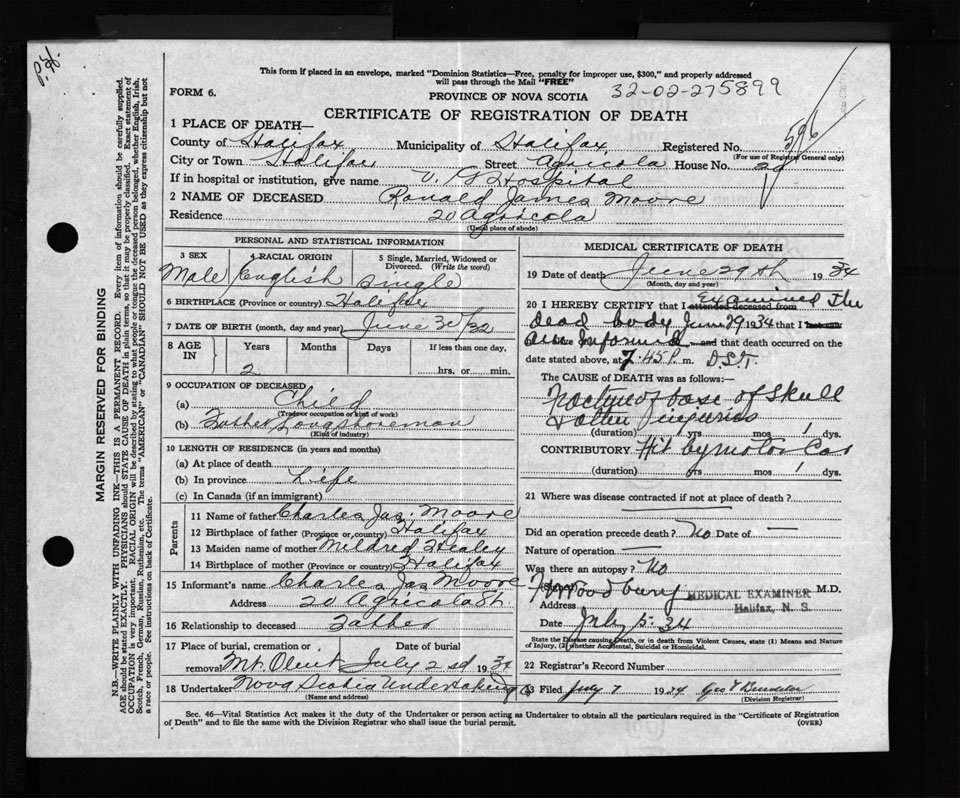 P.H.
This form if placed in an envelope, marked "Dominion Statistics—Free, penalty for improper use, $300," and properly addressed
will pass through the Mail "FREE"
32-02-275899
FORM 6.
PROVINCE OF NOVA SCOTIA
CERTIFICATE OF REGISTRATION OF DEATH
1 PLACE OF DEATH—
County of Halifax Municipality of Halifax Registered No. 596
(For use of Registrar General only)
City or Town Halifax Street Agricola House No. 20
If in hospital or institution, give name V. G Hospital
2 NAME OF DECEASED Ronald James Moore
Residence 20 Agricola
(Usual place of abode)
PERSONAL AND STATISTICAL INFORMATION
3 SEX Male
4 RACIAL ORIGIN English
5 Single, Married, Widowed or Divorced. (Write the word) Single
6 BIRTHPLACE (Province or country) Halifax
7 DATE OF BIRTH (month, day and year) June 30/32
8 AGE IN Years Months Days If less than one day,
2 ......hrs. or......min.
9 OCCUPATION OF DECEASED
(a) Child
(Trade, occupation or kind of work)
(b) Father Longshoreman
(Kind of industry)
10 LENGTH OF RESIDENCE (in years and months)
(a) At place of death
(b) In province Life
(c) In Canada (if an immigrant)
Parents
11 Name of father Charles Jas. Moore
12 Birthplace of father (Province or country) Halifax
13 Maiden name of mother Mildred Healey
14 Birthplace of mother (Province or country) Halifax
15 Informant's name Charles Jas Moore
Address 20 Agricola St.
16 Relationship to deceased Father
17 Place of burial, cremation or removal Mt. Olivet Date of burial July 2nd 1934
18 Undertaker Nova Scotia Undertaking Co
(Name and address)
MEDICAL CERTIFICATE OF DEATH
19 Date of death June 29th 1934
(Month, day and year)
20 I HEREBY CERTIFY that I attended deceased from Examined the
dead body June 29 1934 that I
am informed and that death occurred on the
date stated above, at 7.45 P. m. D.S.T.
The CAUSE OF DEATH was as follows:—
Fracture of base of Skull
& other injuries
(duration) yrs mos 1 dys
CONTRIBUTORY Hit by motor Car
(duration) yrs mos 1 dys
21 Where was disease contracted if not at place of death?
Did an operation precede death? No Date of —
Nature of operation —
Was there an autopsy? No
Woodbury MEDICAL EXAMINER M.D.
Address Halifax, N. S.
Date July 5. 34
State the Disease causing Death, or in death from Violent Causes, state (1) Means and Nature
of Injury, (2) whether Accidental, Suicidal or Homicidal.
22 Registrar's Record Number
23 Filed July 7 1934 Geo
(Division Registrar)
Sec. 46—Vital Statistics Act makes it the duty of the Undertaker or person acting as Undertaker to obtain all the particulars required in the "Certificate of Registration
of Death" and to file the same with the Division Registrar who shall issue the burial permit. (OVER)
MARGIN RESERVED FOR BINDING
N.B.—WRITE PLAINLY WITH UNFADING INK—THIS IS A PERMANENT RECORD. Every item of information should be carefully supplied.
AGE should be stated EXACTLY. PHYSICIANS should STATE CAUSE OF DEATH in plain terms, so that it may be properly classified. Exact statement of
OCCUPATION is very important. RACIAL ORIGIN will be described by stating to what people or tongue the deceased person belonged, whether English, Irish,
Scotch, French, German, Russian, Ruthenian, etc. The terms "AMERICAN" or "CANADIAN" SHOULD NOT BE USED as they express citizenship but not
a race or people. See instructions on back of Certificate.